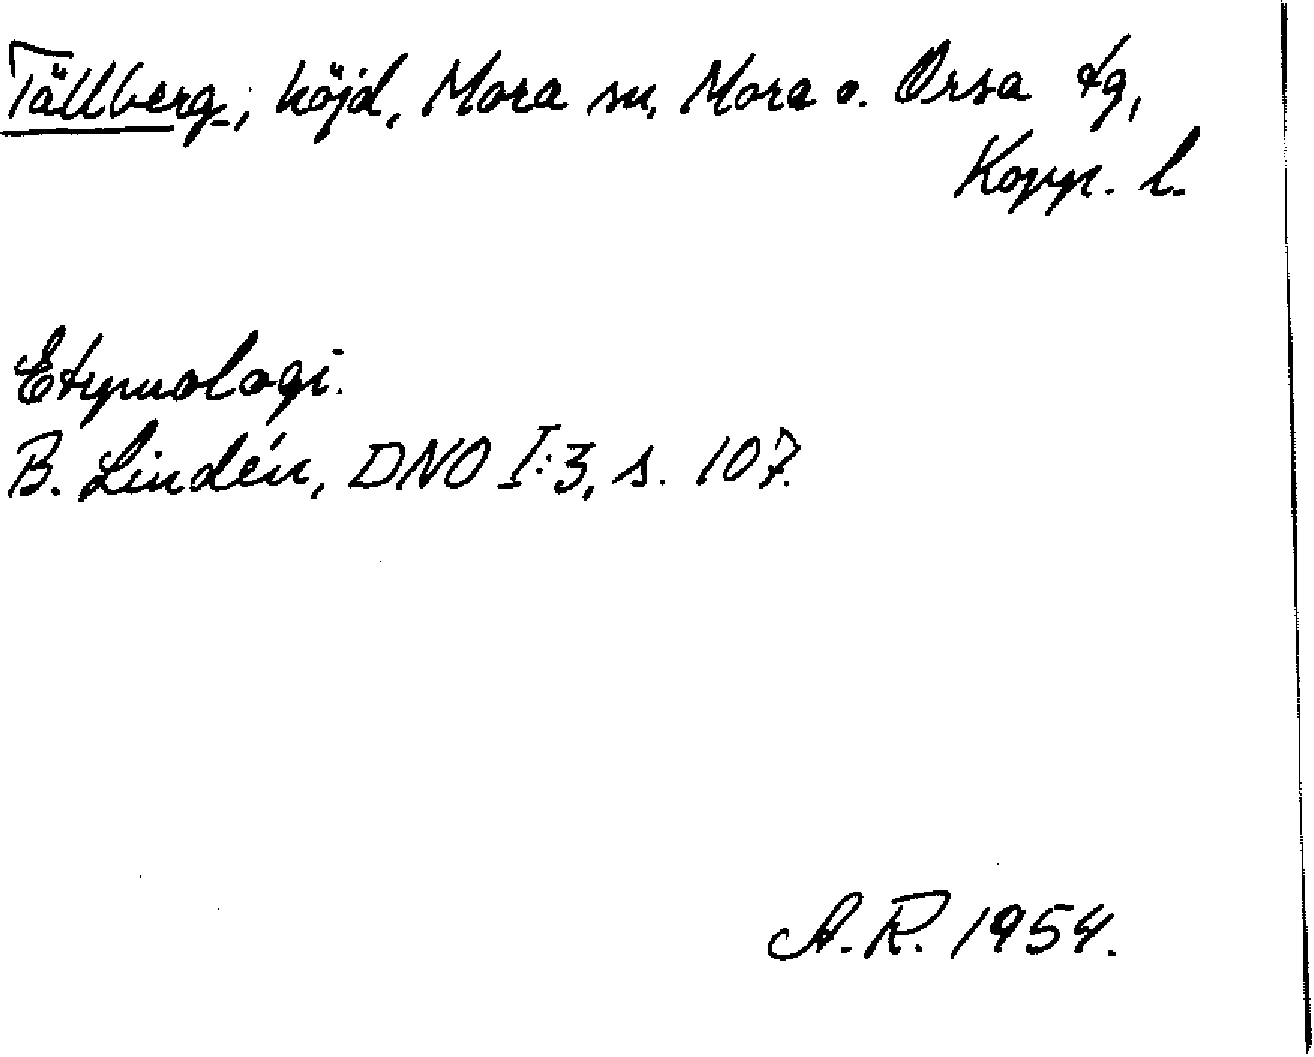 Tällberg; höjd, Mora sn, Mora o. Orsa tg,
Kopp. l.
Etymologi.
B. Lindén, DNO I:3, s. 107.
A.R. 1954.